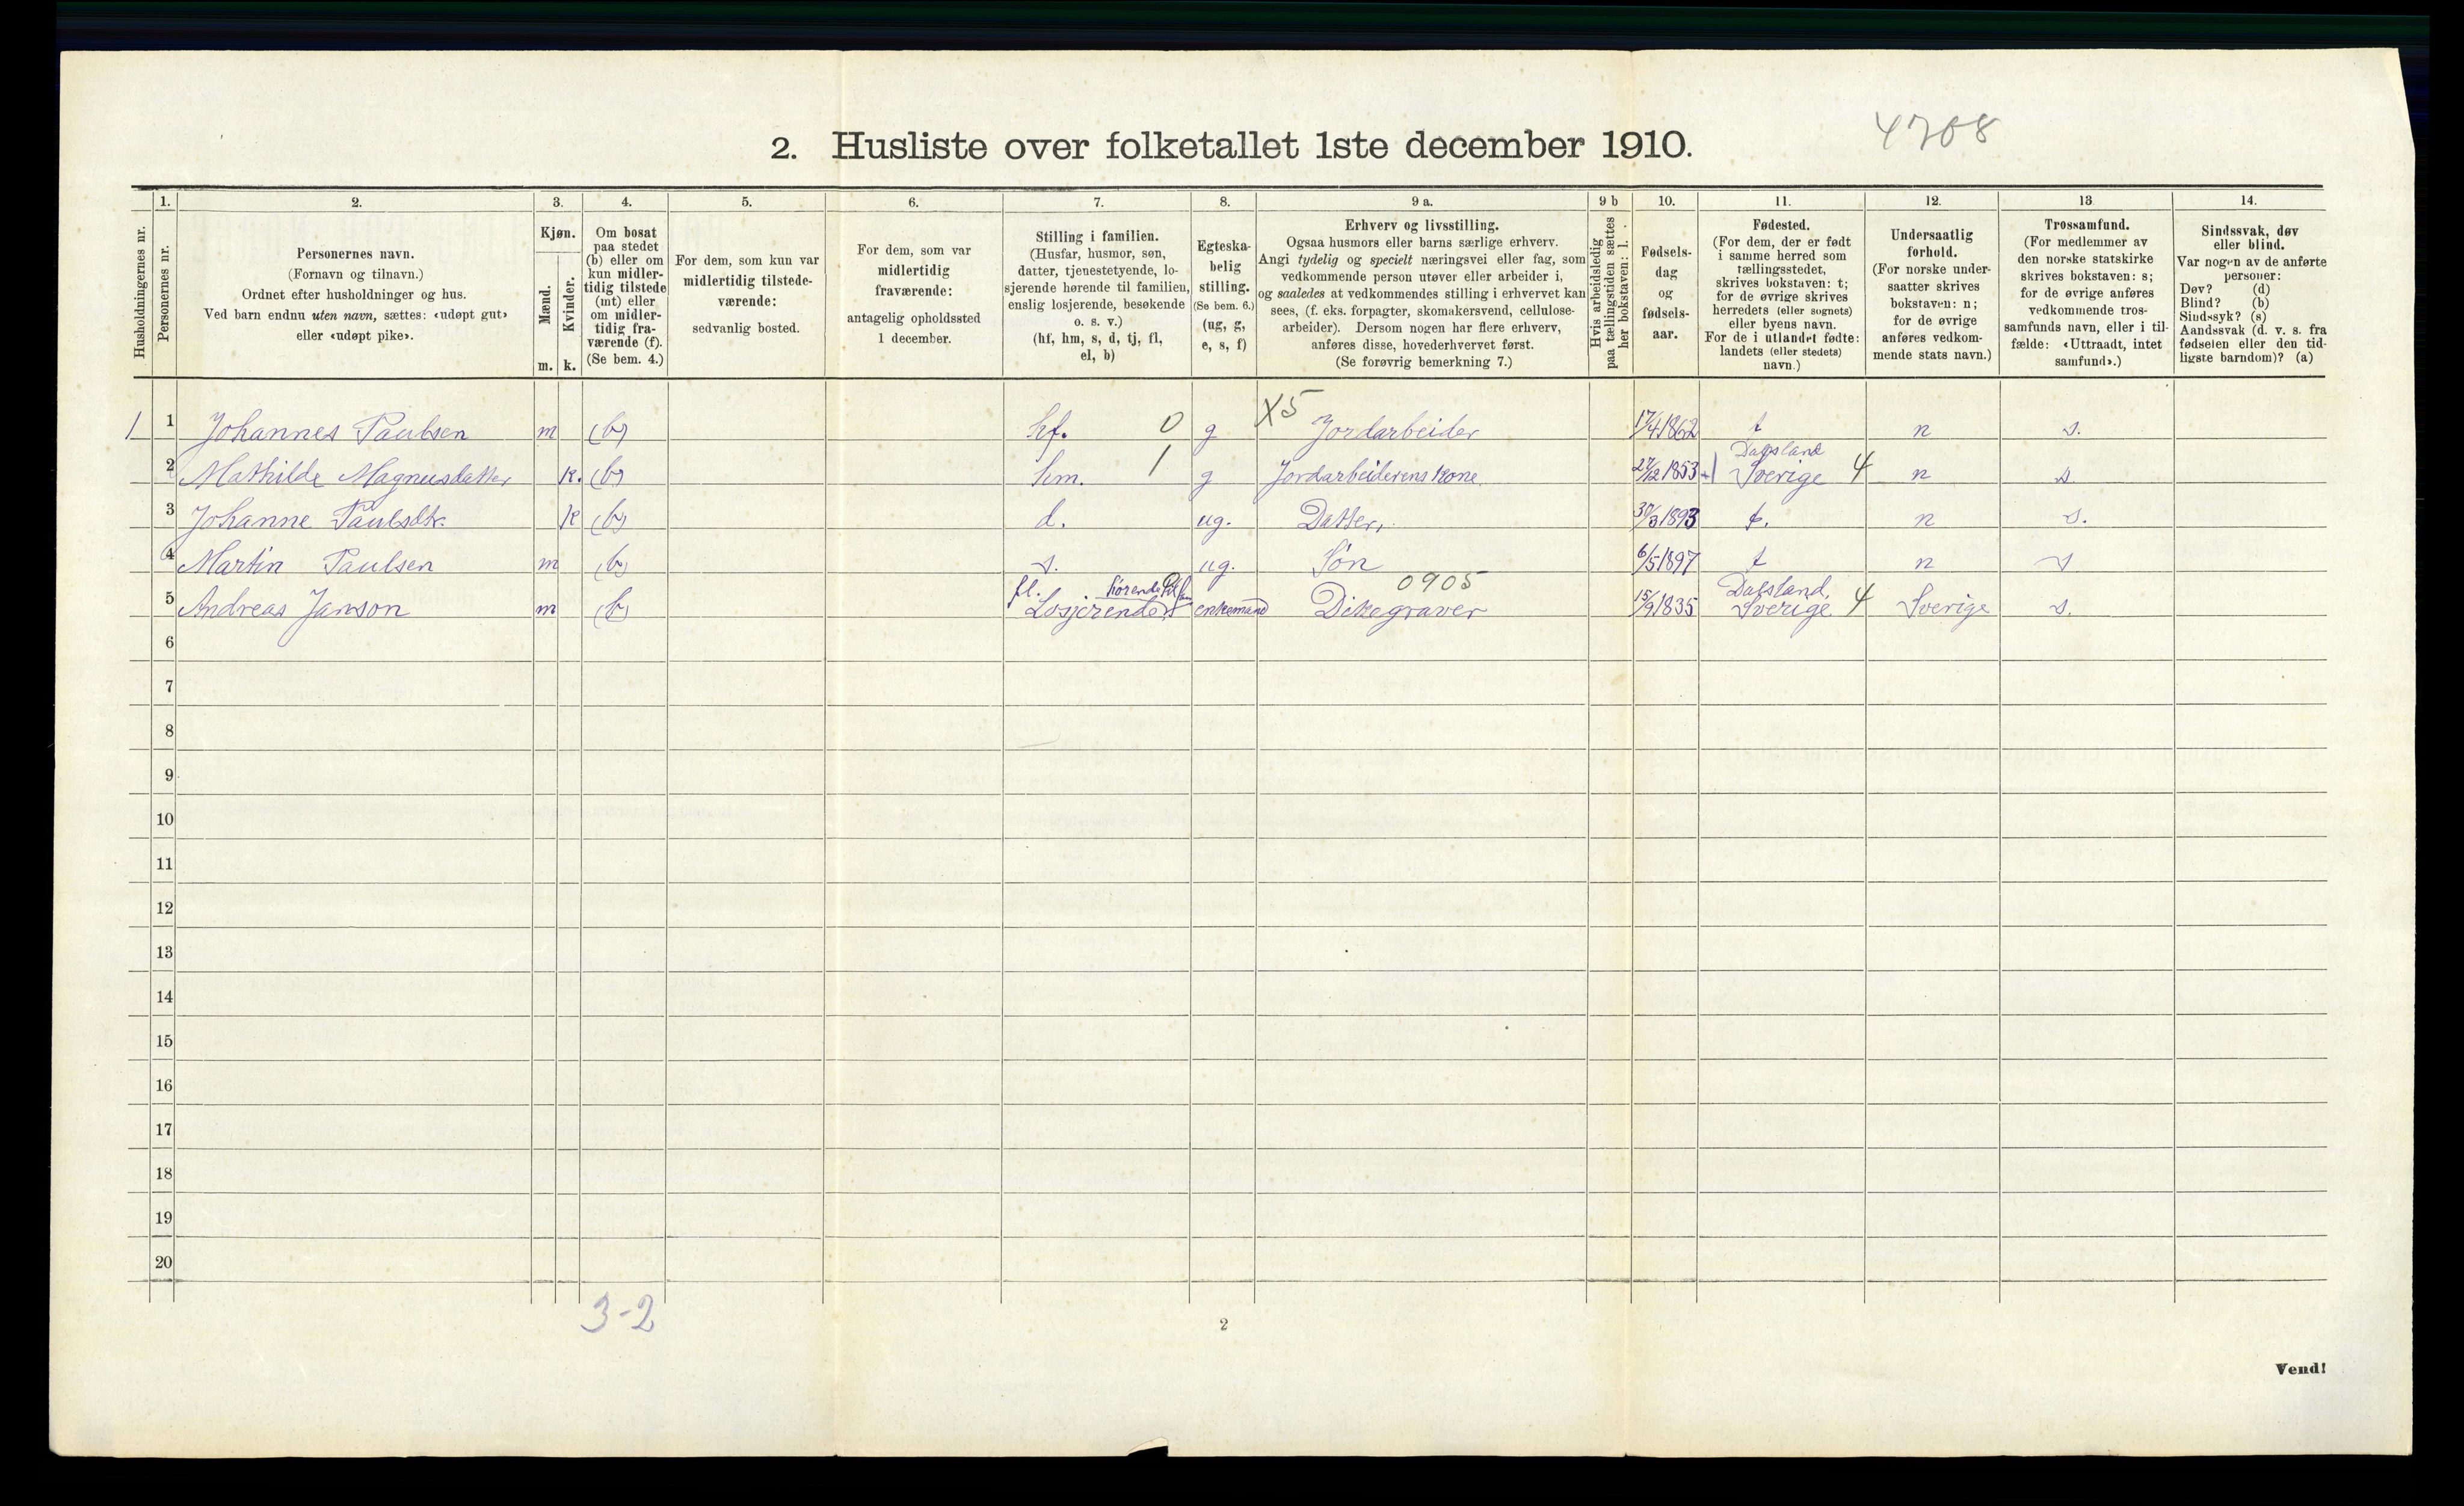 4768
2. Husliste over folketallet 1ste december 1910.
Husholdningernes nr.
1.
Personernes nr.
2.
Personernes navn.
(Fornavn og tilnavn.)
Ordnet efter husholdninger og hus.
Ved barn endnu uten navn, sættes: «udøpt gut»
eller «udøpt pike».
3.
Kjøn.
Mænd.
Kvinder.
m. k.
4.
Om bosat
paa stedet
(b) eller om
kun midler-
tidig tilstede
(mt) eller
om midler-
tidig fra-
værende (f).
(Se bem. 4.)
5.
For dem, som kun var
midlertidig tilstede-
værende:
sedvanlig bosted.
6.
For dem, som var
midlertidig
fraværende:
antagelig opholdssted
1 december.
7.
Stilling i familien.
(Husfar, husmor, søn,
datter, tjenestetyende, lo-
sjerende hørende til familien,
enslig losjerende, besøkende
o. s. v.)
(hf, hm, s, d, tj, fl,
el, b)
8.
Egteska-
belig
stilling.
(Se bem. 6.)
(ug, g,
e, s, f)
9 a.
Erhverv og livsstilling.
Ogsaa husmors eller barns særlige erhverv.
Angi tydelig og specielt næringsvei eller fag, som
vedkommende person utøver eller arbeider i,
og saaledes at vedkommendes stilling i erhvervet kan
sees, (f. eks. forpagter, skomakersvend, cellulose-
arbeider). Dersom nogen har flere erhverv,
anføres disse, hovederhvervet først.
(Se forøvrig bemerkning 7.)
9 b
Hvis arbeidsledig
paa tællingstiden sættes
her bokstaven: l.
10.
Fødsels-
dag
og
fødsels-
aar.
11.
Fødested.
(For dem, der er født
i samme herred som
tællingsstedet,
skrives bokstaven: t;
for de øvrige skrives
herredets (eller sognets)
eller byens navn.
For de i utlandet fødte:
landets (eller stedets)
navn.)
12.
Undersaatlig
forhold.
(For norske under-
saatter skrives
bokstaven: n;
for de øvrige
anføres vedkom-
mende stats navn.)
13
Trossamfund.
(For medlemmer av
den norske statskirke
skrives bokstaven: s;
for de øvrige anføres
vedkommende tros-
samfunds navn, eller i til-
fælde: «Uttraadt, intet
samfund».)
14.
Sindssvak, døv
eller blind.
Var nogen av de anførte
personer:
Døv? (d)
Blind? (b)
Sindssyk? (s)
Aandssvak (d. v. s. fra
fødselen eller den tid-
ligste barndom)? (a)
1 1 Johannes Paulsen m (b) hf. 0 g X5 Jordarbeider 17/4 1862 t n s.
2 Mathilde Magnusdatter k. (b) hm. 1 g Jordarbeiderens kone 27/12 1853 Dalsland Sverige 4 n s
3 Johanne Paulsdtr. k (b) d. ug. Datter, 30/3 1893 t. n s.
4 Martin Paulsen m (b) s. ug. Søn 6/5 1897 t n s
5 Andreas Janson m (b) fl. Losjerende hørende til fam enkemand Dikegraver 0905 15/9 1835 Dalsland, Sverige. 4 Sverige s.
6
7
8
9
10
11
12
13
14
15
16
17
18
19
20
3-2
2
Vend!